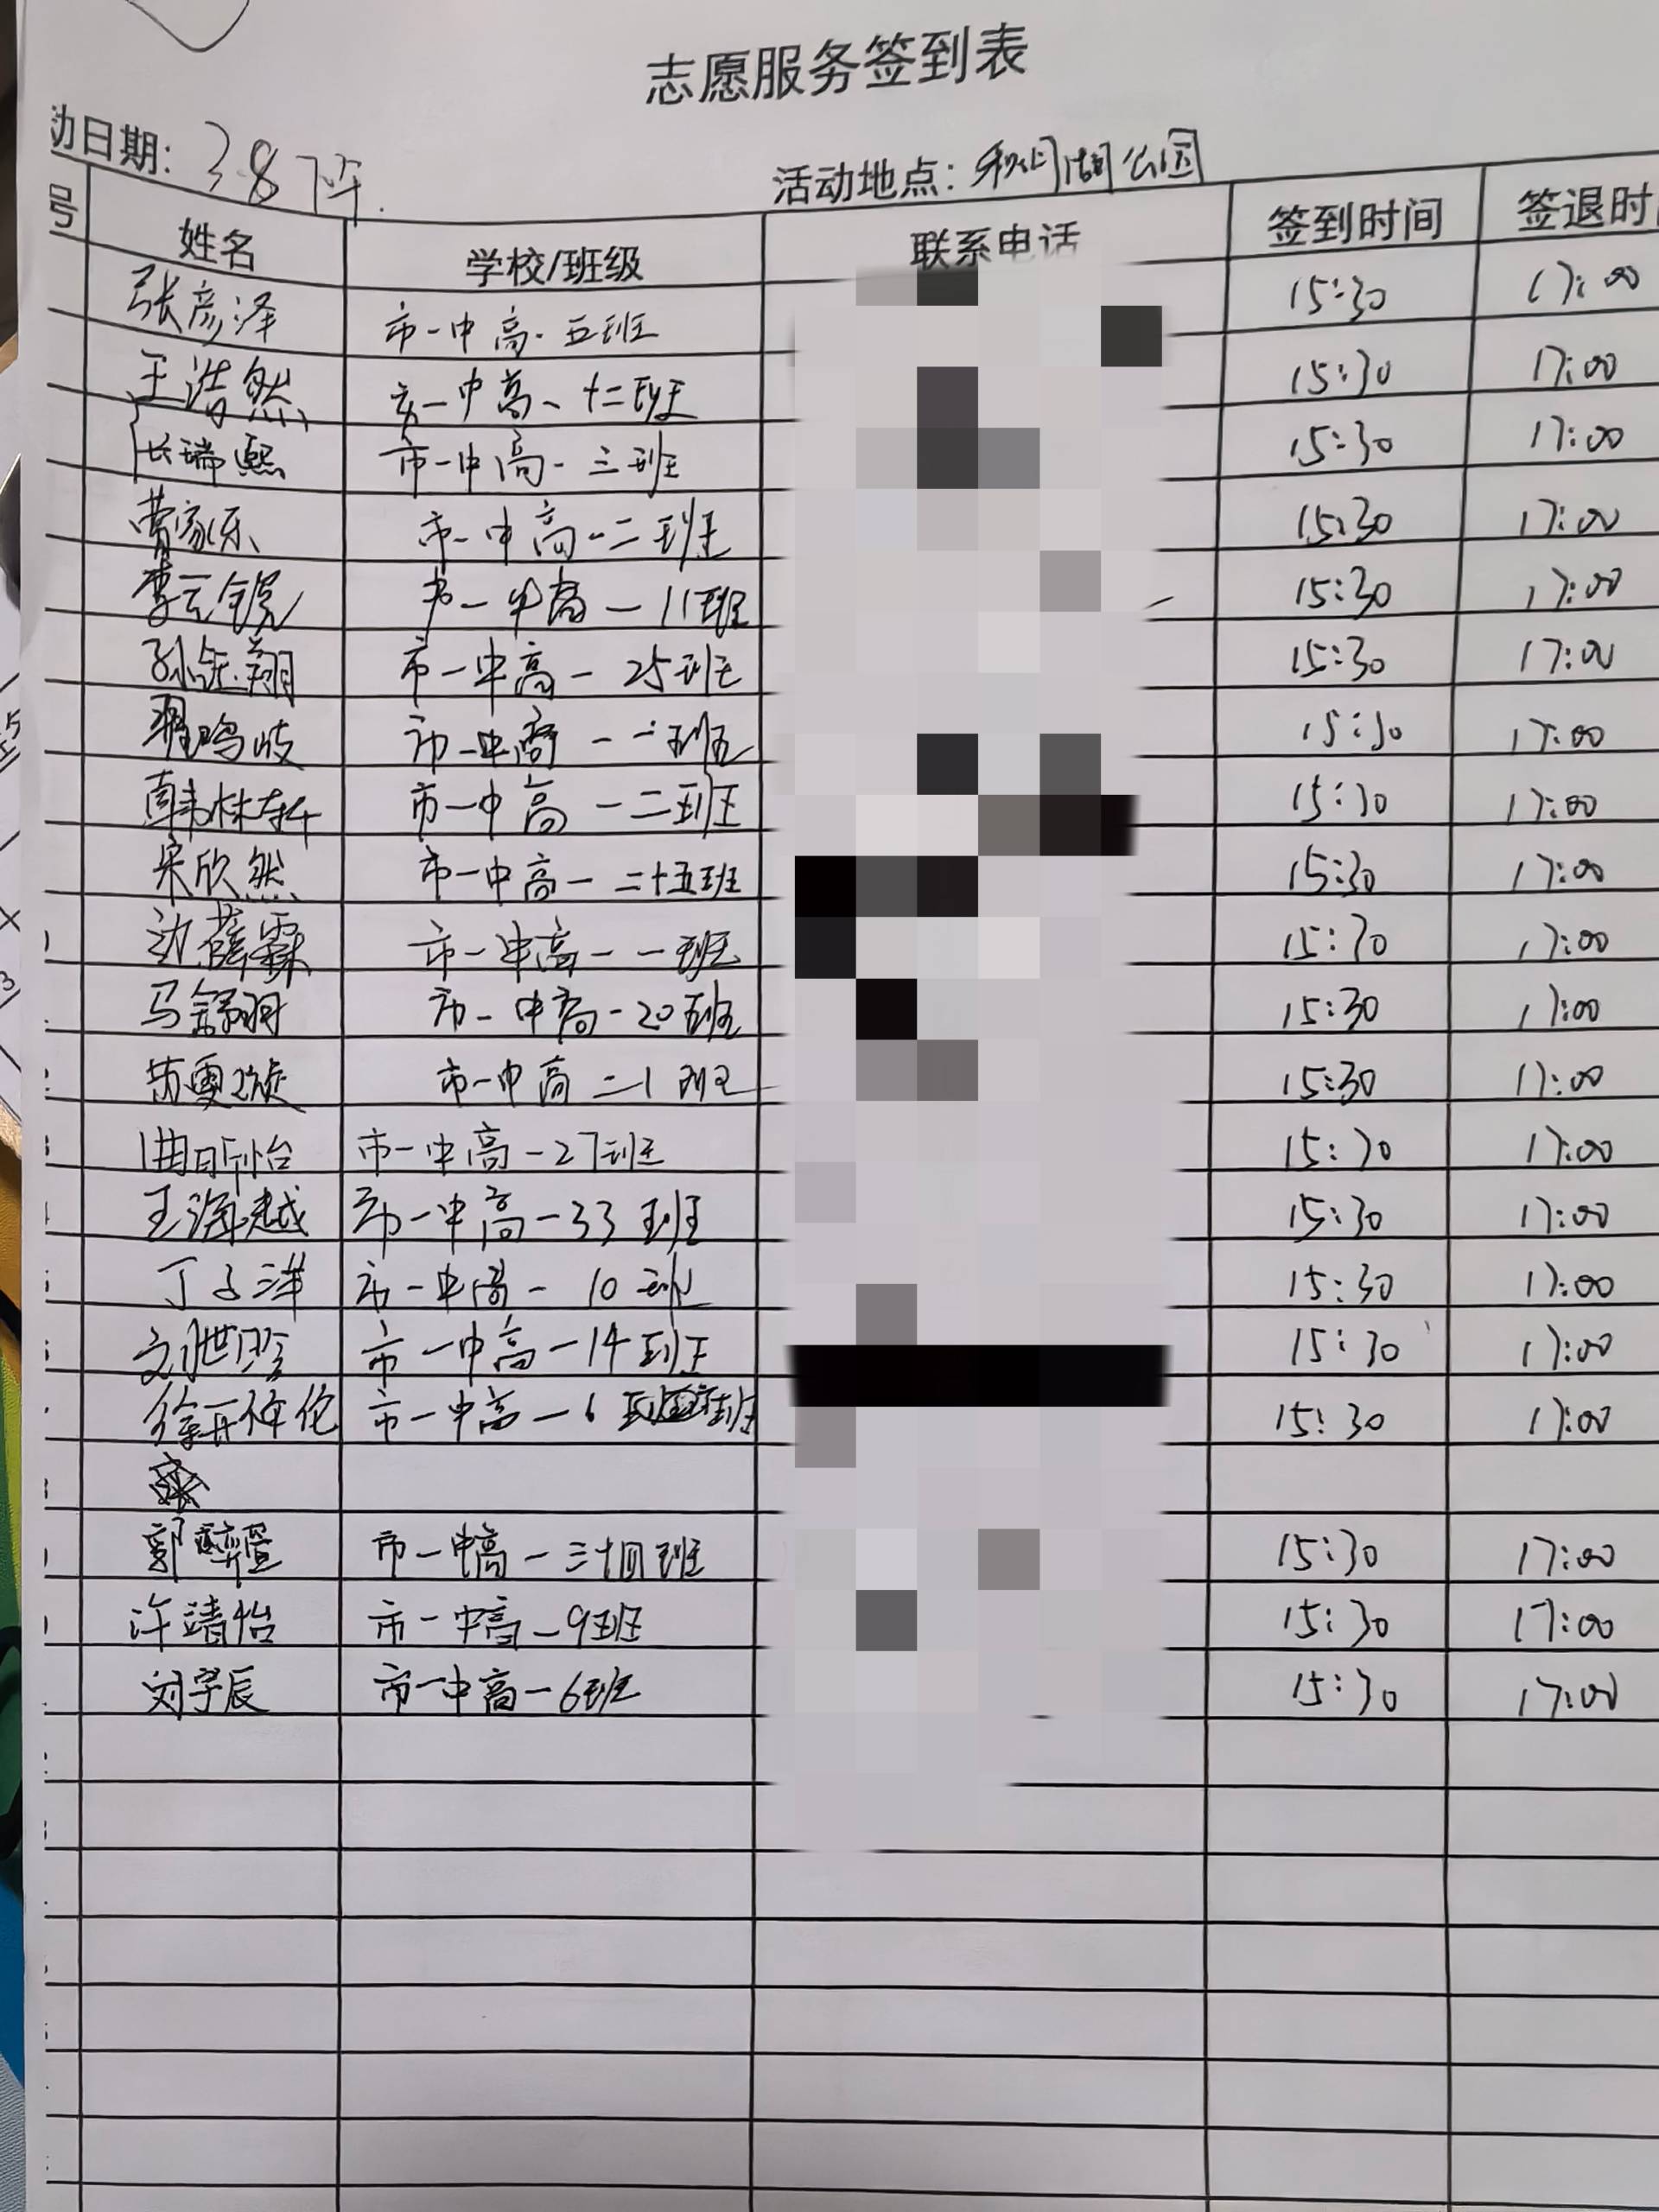 志愿服务签到表
动日期: 38下午.
活动地点: 秋湖公园
号 姓名 学校/班级 联系电话 签到时间 签退时
张彦泽 市一中高一五班 15:30 17:00
王浩然 市一中高一十二班 15:30 17:00
张瑞熙 市一中高一三班 15:30 17:00
曹家乐 市一中高一二班 15:30 17:00
李云 市一中高一11班 15:30 17:00
孙钰翔 市一中高一25班 15:30 17:00
翟鸣岐 市一中高一一班 15:30 17:00
韩林轩 市一中高一二班 15:30 17:00
宋欣然 市一中高一二十五班 15:30 17:00
边薛霖 市一中高一一班 15:30 17:00
马舒羽 市一中高一20班 15:30 17:00
黄雯璇 市一中高二1班 15:30 17:00
曲昕怡 市一中高一27班 15:30 17:00
王海越 市一中高一33班 15:30 17:00
丁子洋 市一中高一10班 15:30 17:00
刘世 市一中高一14班 15:30 17:00
徐冉伦 市一中高一6班 15:30 17:00
郭 市一中高一三十四班 15:30 17:00
许靖怡 市一中高一9班 15:30 17:00
刘宇辰 市一中高一6班 15:30 17:00